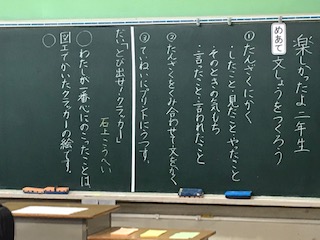 楽しかったよ二年生
めあて 文しょうをつくろう
①たんざくにかく
・したこと・見たこと・やったこと
・そのときの気もち
・言ったこと・言われたこと
②たんざくをくみ合わせて文をかく
③ていねいにプリントにうつす。
だい「とび出せ!クラッカー」
石上こうへい
○わたしが一番心にのこったことは、
図工でかいたクラッカーの絵です。
○